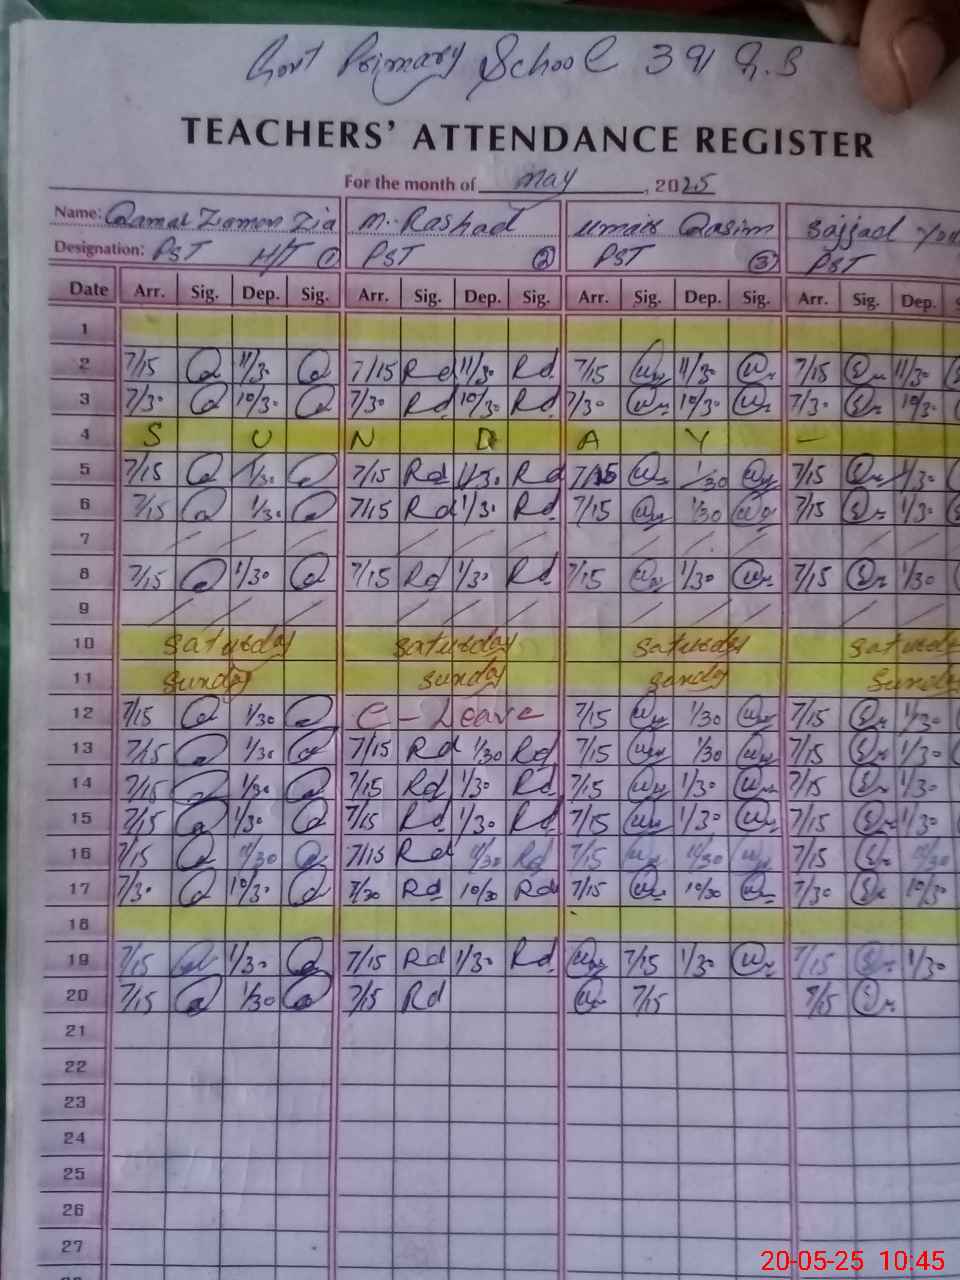 Govt Primary School 391 G.B
TEACHERS' ATTENDANCE REGISTER
For the month of May, 2025
Name: Qamar Zaman Zia M. Rashad Umair Qasim Sajjad
Designation: PST H/T 1 PST 2 PST 3 PST
Date Arr. Sig. Dep. Sig. Arr. Sig. Dep. Sig. Arr. Sig. Dep. Sig. Arr. Sig. Dep.
1
2 7/15 11/30 7/15 Rd 11/30 Rd 7/15 11/30 7/15 11/30
3 7/30 10/30 7/30 Rd 10/30 Rd 7/30 10/30 7/30 10/30
4 S U N D A Y -
5 7/15 1/30 7/15 Rd 1/30 Rd 7/15 1/30 7/15 1/30
6 7/15 1/30 7/15 Rd 1/30 Rd 7/15 1/30 7/15 1/30
7
8 7/15 1/30 7/15 Rd 1/30 Rd 7/15 1/30 7/15 1/30
9
10 Saturday Saturday Saturday Saturday
11 Sunday Sunday Sunday Sunday
12 7/15 1/30 C-Leave 7/15 1/30 7/15 1/30
13 7/15 1/30 7/15 Rd 1/30 Rd 7/15 1/30 7/15 1/30
14 7/15 1/30 7/15 Rd 1/30 Rd 7/15 1/30 7/15 1/30
15 7/15 1/30 7/15 Rd 1/30 Rd 7/15 1/30 7/15 1/30
16 7/15 11/30 7/15 Rd 11/30 Rd 7/15 11/30 7/15 11/30
17 7/30 10/30 7/30 Rd 10/30 Rd 7/15 10/30 7/30 10/30
18
19 7/15 1/30 7/15 Rd 1/30 Rd 7/15 1/30 7/15 1/30
20 7/15 1/30 7/15 Rd 7/15 7/15
21
22
23
24
25
26
27
20-05-25 10:45